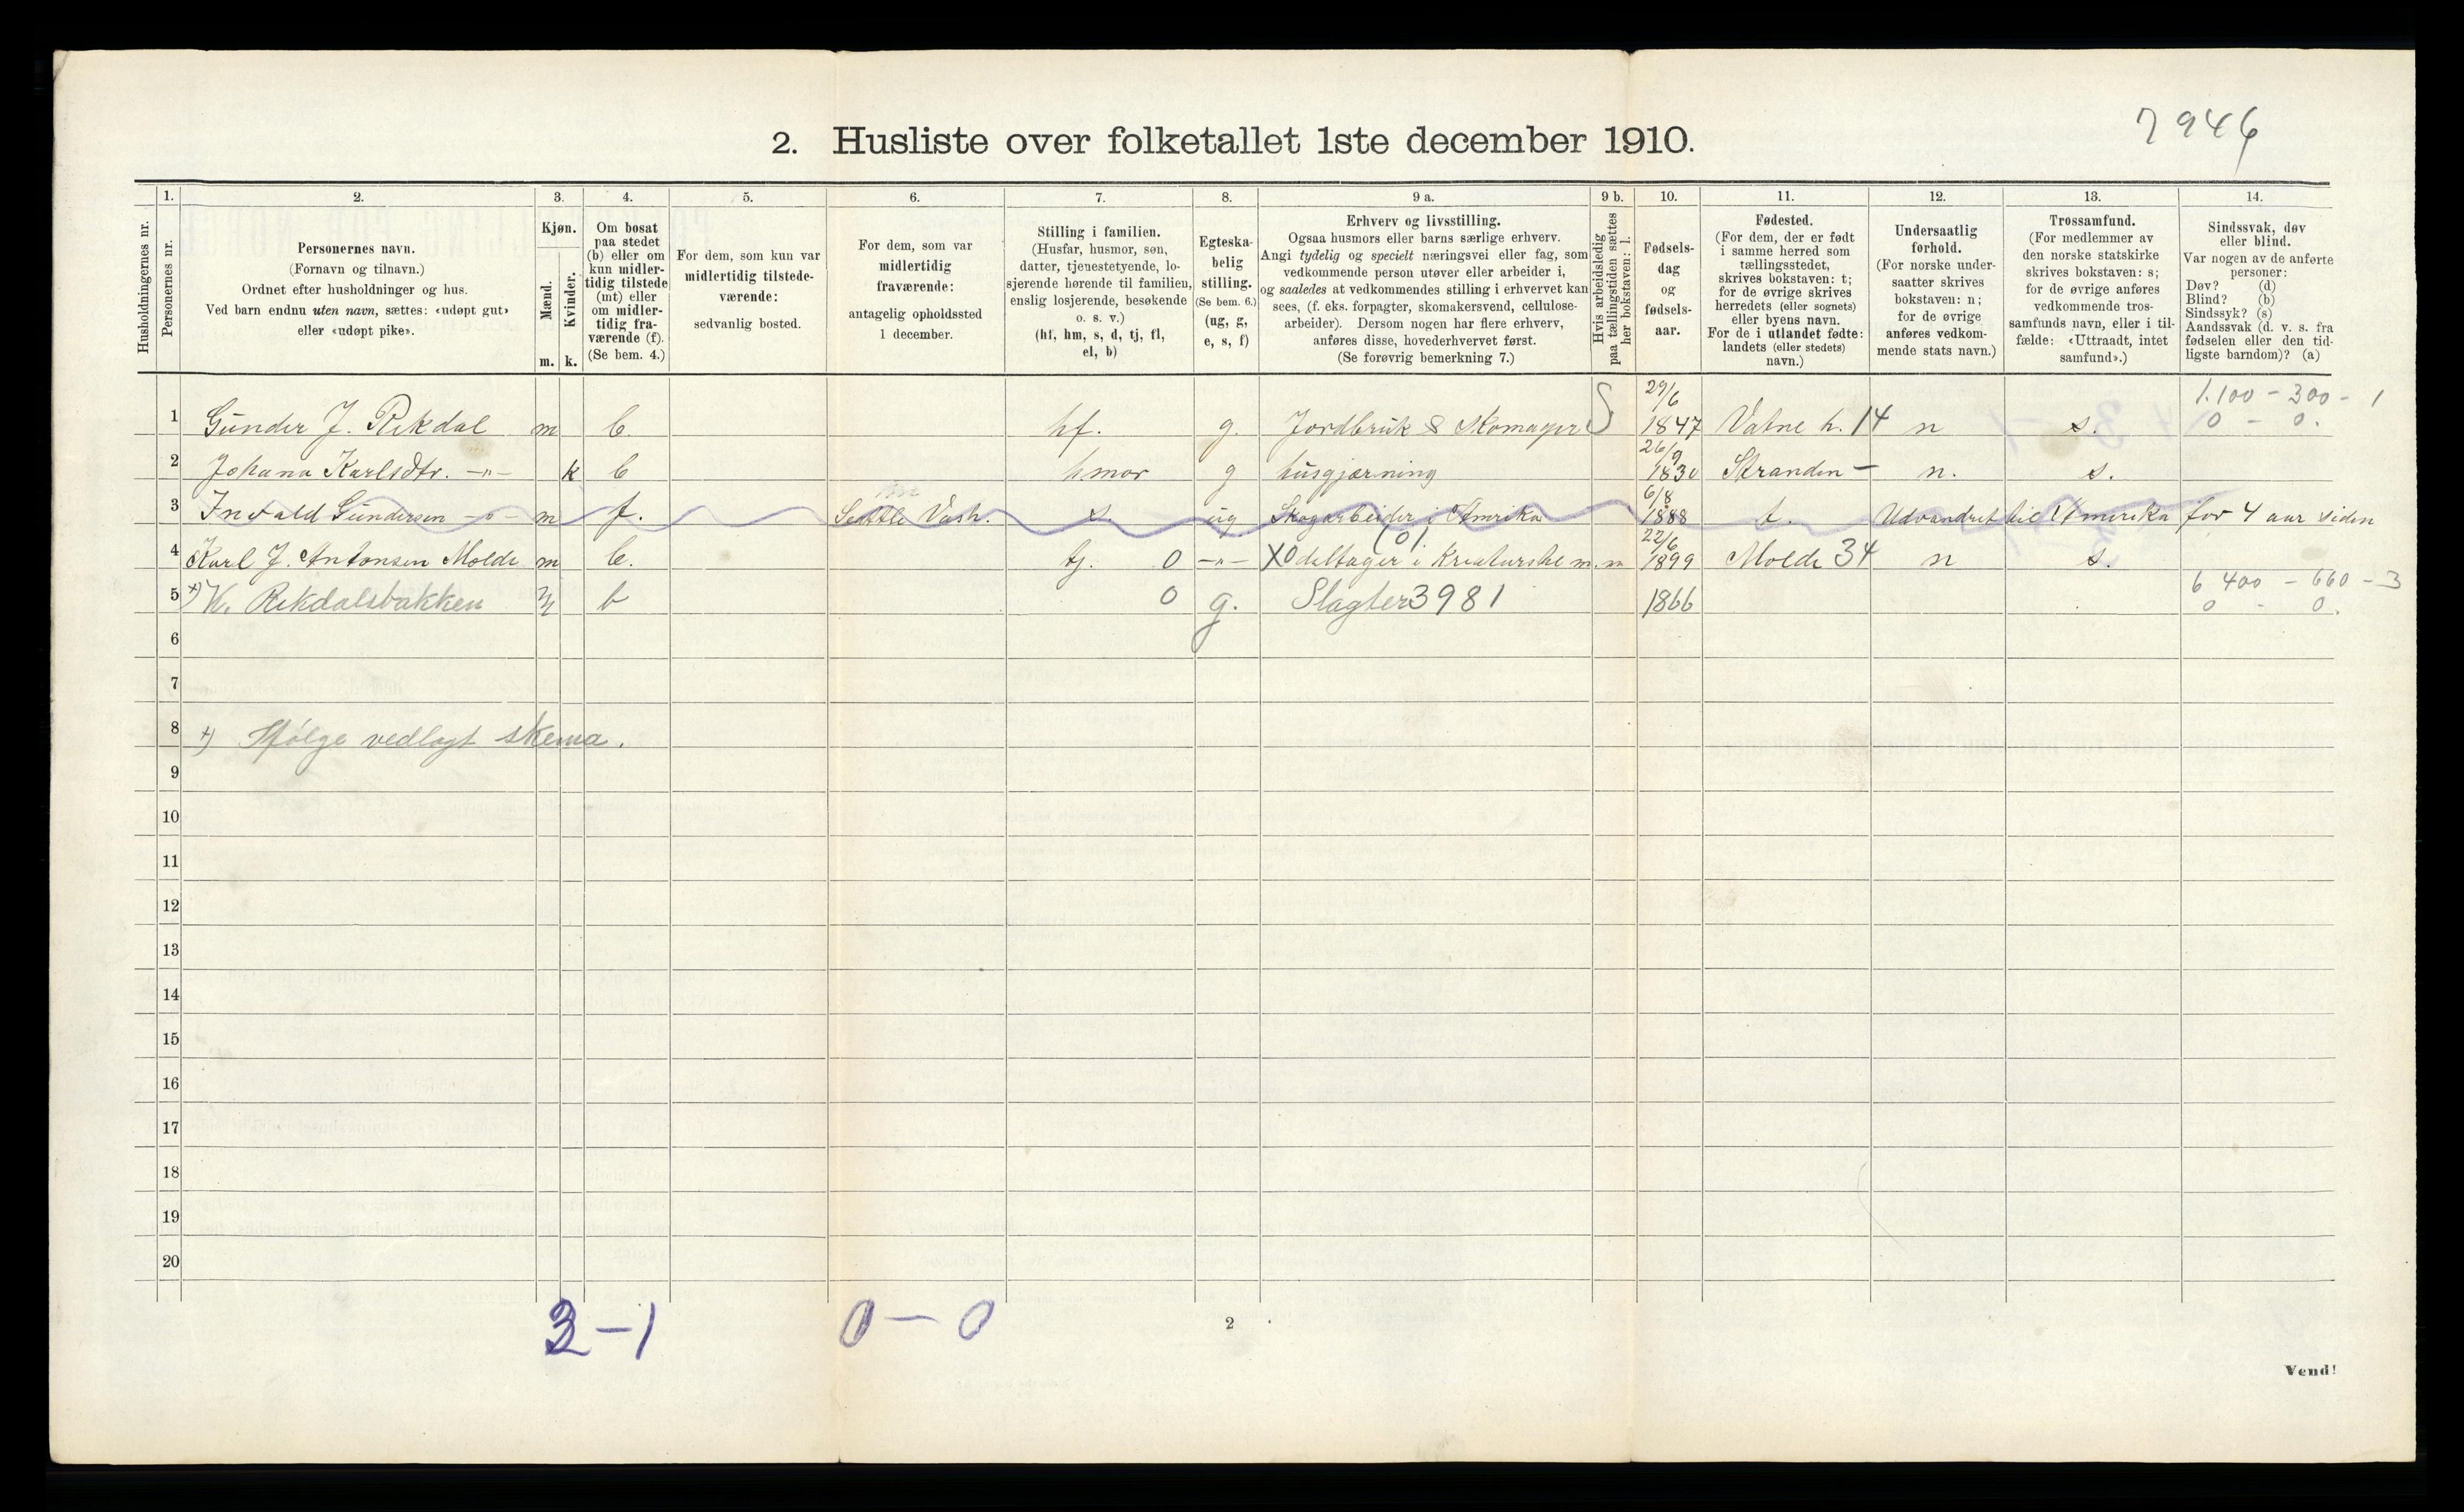 7946
2. Husliste over folketallet 1ste december 1910.
Husholdningernes nr.
1.
Personernes nr.
2.
Personernes navn.
(Fornavn og tilnavn.)
Ordnet efter husholdninger og hus.
Ved barn endnu uten navn, sættes: «udøpt gut»
eller «udøpt pike».
3.
Kjøn.
Mænd.
Kvinder.
m. k.
4.
Om bosat
paa stedet
(b) eller om
kun midler-
tidig tilstede
(mt) eller
om midler-
tidig fra-
værende (f).
(Se bem. 4.)
5.
For dem, som kun var
midlertidig tilstede-
værende:
sedvanlig bosted.
6.
For dem, som var
midlertidig
fraværende:
antagelig opholdssted
1 december.
7.
Stilling i familien.
(Husfar, husmor, søn,
datter, tjenestetyende, lo-
sjerende hørende til familien,
enslig losjerende, besøkende
o. s. v.)
(hf, hm, s, d, tj, fl,
el, b)
8.
Egteska-
belig
stilling.
(Se bem. 6.)
(ug, g,
e, s, f)
9 a.
Erhverv og livsstilling.
Ogsaa husmors eller barns særlige erhverv.
Angi tydelig og specielt næringsvei eller fag, som
vedkommende person utøver eller arbeider i,
og saaledes at vedkommendes stilling i erhvervet kan
sees, (f. eks. forpagter, skomakersvend, cellulose-
arbeider). Dersom nogen har flere erhverv,
anføres disse, hovederhvervet først.
(Se forøvrig bemerkning 7.)
9 b.
Hvis arbeidsledig
paa tællingstiden sættes
her bokstaven: l.
10.
Fødsels-
dag
og
fødsels-
aar.
11.
Fødested.
(For dem, der er født
i samme herred som
tællingsstedet,
skrives bokstaven: t;
for de øvrige skrives
herredets (eller sognets)
eller byens navn.
For de i utlandet fødte:
landets (eller stedets)
navn.)
12.
Undersaatlig
forhold.
(For norske under-
saatter skrives
bokstaven: n;
for de øvrige
anføres vedkom-
mende stats navn.)
13.
Trossamfund.
(For medlemmer av
den norske statskirke
skrives bokstaven: s;
for de øvrige anføres
vedkommende tros-
samfunds navn, eller i til-
fælde: «Uttraadt, intet
samfund».)
14.
Sindssvak, døv
eller blind.
Var nogen av de anførte
personer:
Døv? (d)
Blind? (b)
Sindssyk? (s)
Aandssvak (d. v. s. fra
fødselen eller den tid-
ligste barndom)? (a)
1.100 - 300 - 1
1 Gunder J. Rekdal m b. hf. g. Jordbruk & Skomager S 29/6 1847 Vatne h. 14 n s. 0 - 0.
2 Johana Karlsdtr. -"- k b hmor g husgjærning 26/9 1830 Stranden - n. s.
3 Invald Gundersen -"- m f. Seattle Vash. s. ug Skogarbeider i Amrika 6/8 1888 t. Udvandret til Amerika for 4 aar siden
4 Karl J. Antonsen Molde m b. tj. 0 -"- X0 deltager i Kreaturstel m. m 22/6 1899 Molde 34 n s.
6 400 - 660 - 3
5 +) K. Rekdalsbakken m b 0 g. Slagter 3981 1866 0 - 0.
6
7
8 +) Ifølge vedlagt skema.
9
10
11
12
13
14
15
16
17
18
19
20
3-1 0-0
2
Vend!